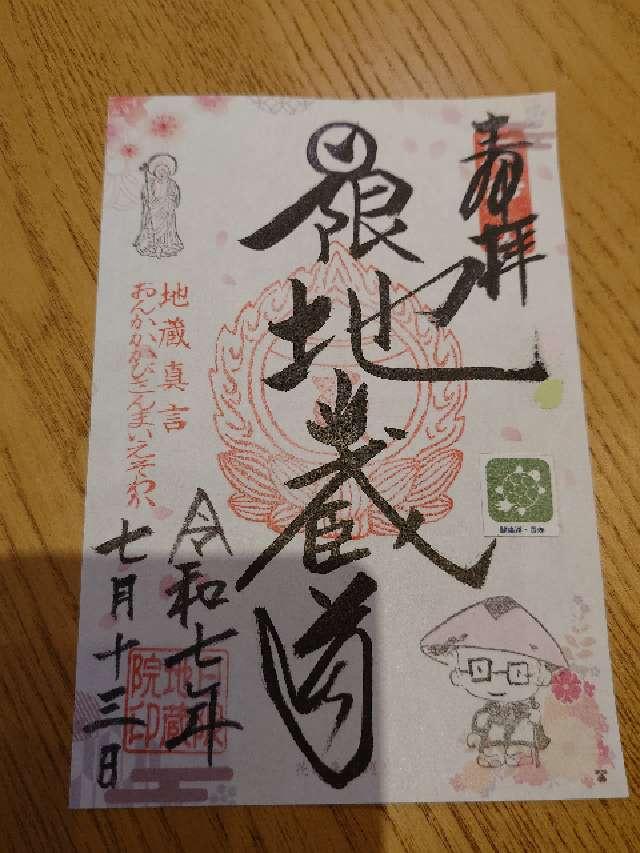 奉拝
日限地蔵尊
地蔵真言
おんかかかびさんまいえそわか
令和七年
七月十三日
日限
地蔵
院印